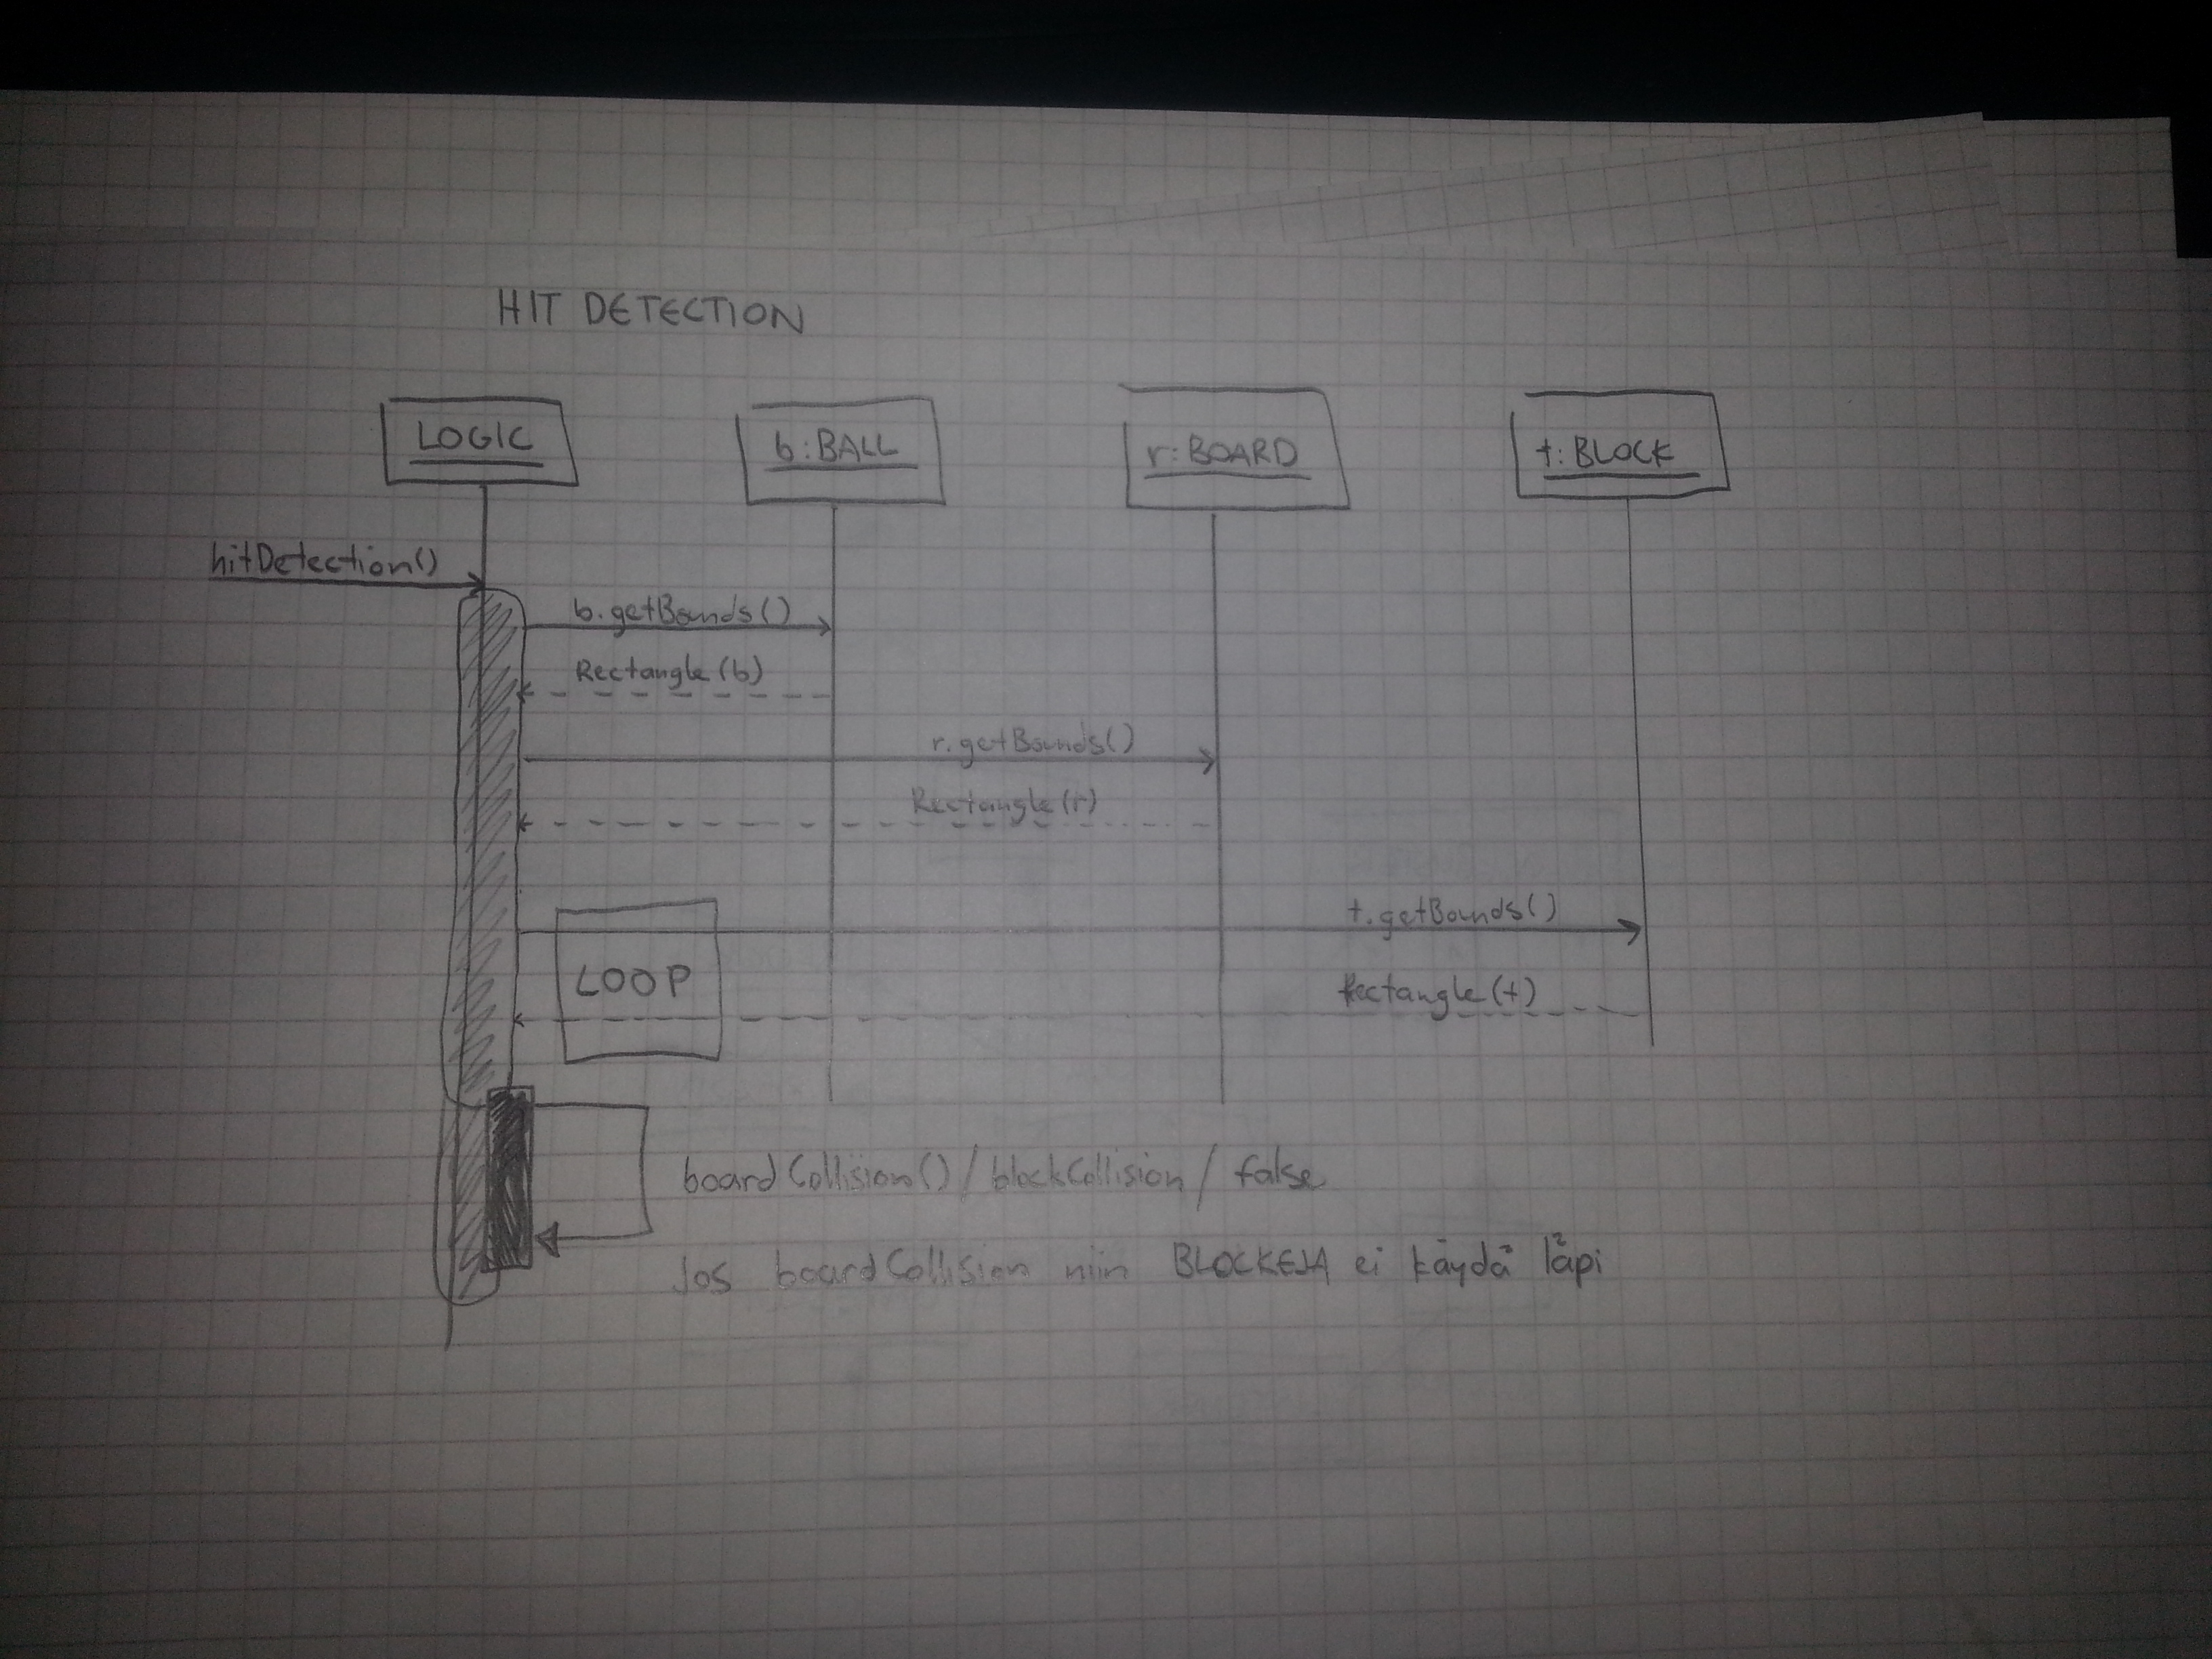 HIT DETECTION
LOGIC
b:BALL
r:BOARD
t:BLOCK
hitDetection()
b.getBounds()
Rectangle(b)
r.getBounds()
Rectangle(r)
t.getBounds()
LOOP
Rectangle(t)
boardCollision()/blockCollision/false
Jos boardCollision niin BLOCKEJA ei käydä läpi